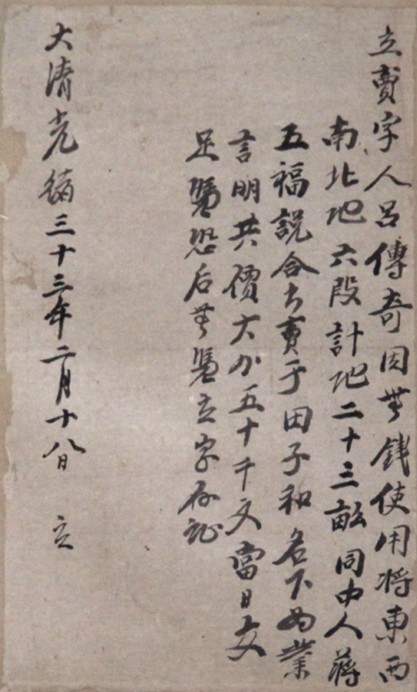 立賣字人呂傳奇因無錢使用将東西
南北地六段計地二十三畝同中人蔣
五福説合出賣于田子和名下為業
言明共價大小五十千文當日交
足恐后無憑立字存証
大清光緒三十三年二月十八日 立